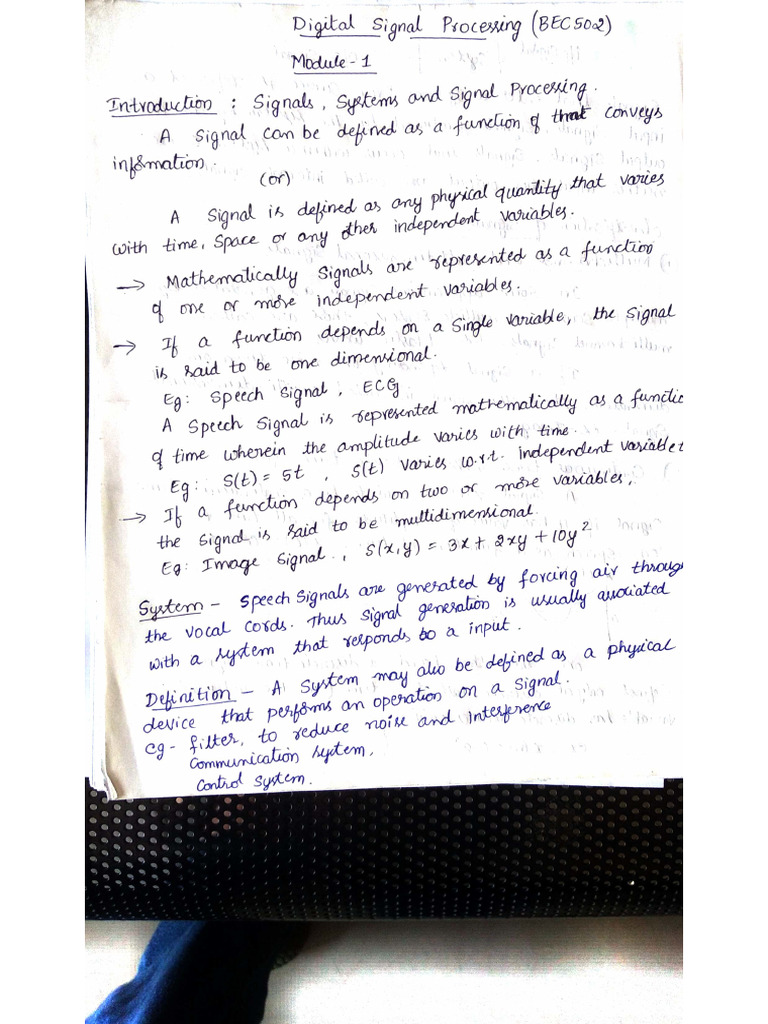 Digital Signal Processing (BEC502)
Module - 1
Introduction : Signals, Systems and Signal Processing.
A Signal can be defined as a function of that conveys
information.
(or)
A Signal is defined as any physical quantity that varies
with time, Space or any other independent variables.
→ Mathematically Signals are represented as a function
of one or more independent variables.
→ If a function depends on a Single variable, the Signal
is said to be one dimensional.
Eg: Speech Signal, ECG
A Speech Signal is represented mathematically as a functio
of time wherein the amplitude varies with time.
Eg: S(t) = 5t , S(t) varies w.r.t. independent variable t
→ If a function depends on two or more variables,
the Signal is said to be multidimensional.
Eg: Image Signal, S(x,y) = 3x + 2xy + 10y²
System - Speech Signals are generated by forcing air throug
the vocal cords. Thus Signal generation is usually associated
with a system that responds to a input.
Definition - A System may also be defined as a physical
device that performs an operation on a Signal.
eg - filter, to reduce noise and Interference
Communication system,
Control System.